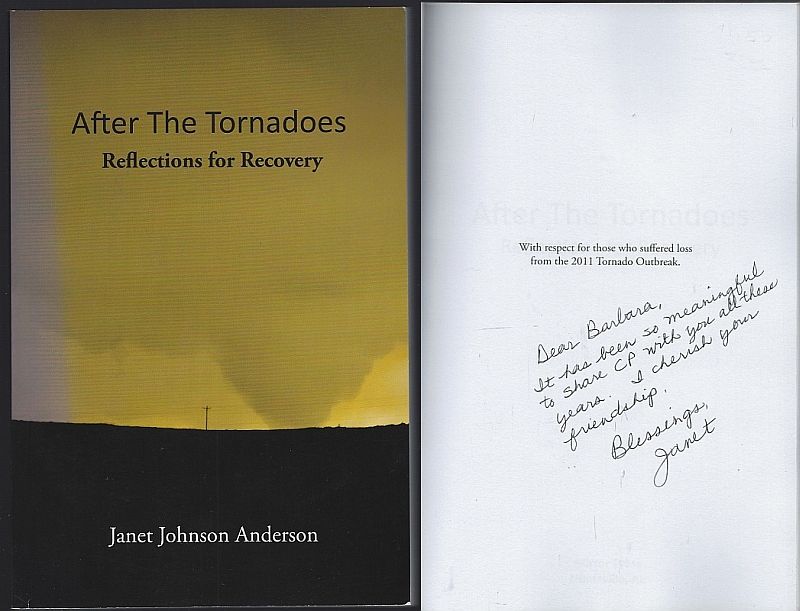 After The Tornadoes
Reflections for Recovery
Janet Johnson Anderson
After The Tornadoes
With respect for those who suffered loss
from the 2011 Tornado Outbreak.
Dear Barbara,
It has been so meaningful
to share CP with you all these
years. I cherish your
friendship.
Blessings,
Janet